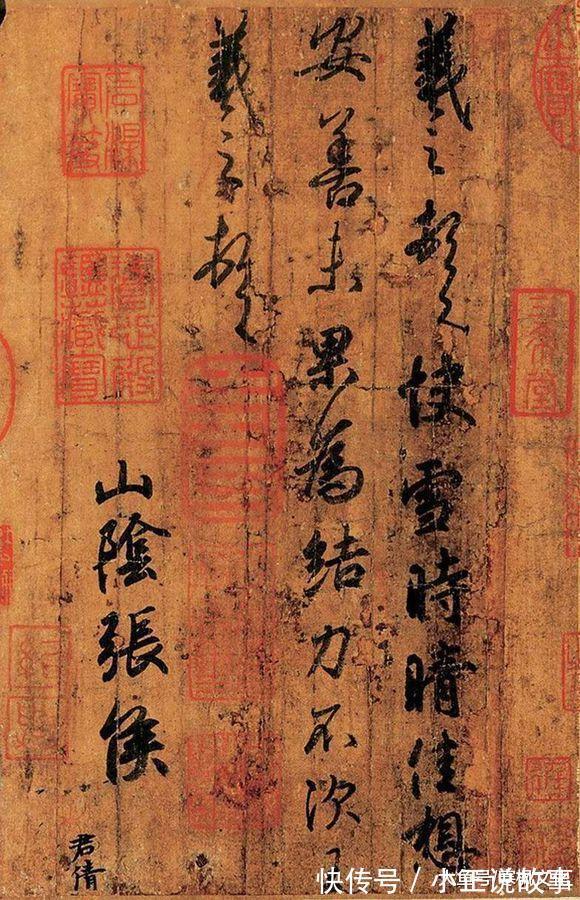 羲之頓首快雪時晴佳想
安善未果為結力不次王
羲之頓首
山陰張侯
君倩
三希堂
快传号／小正说故事